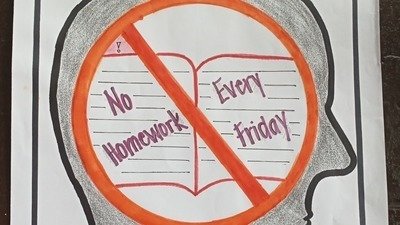 No
Homework
Every
Friday